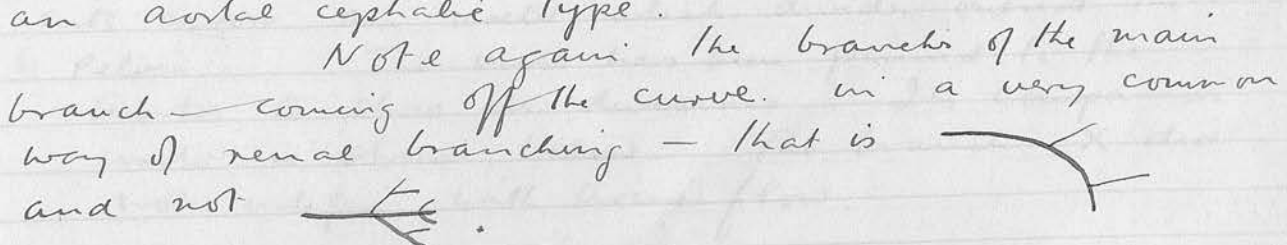 an aortal cephalic type.
Note again the branches of the main
branch – coming off the curve. in a very common
way of renal branching – that is
and not .